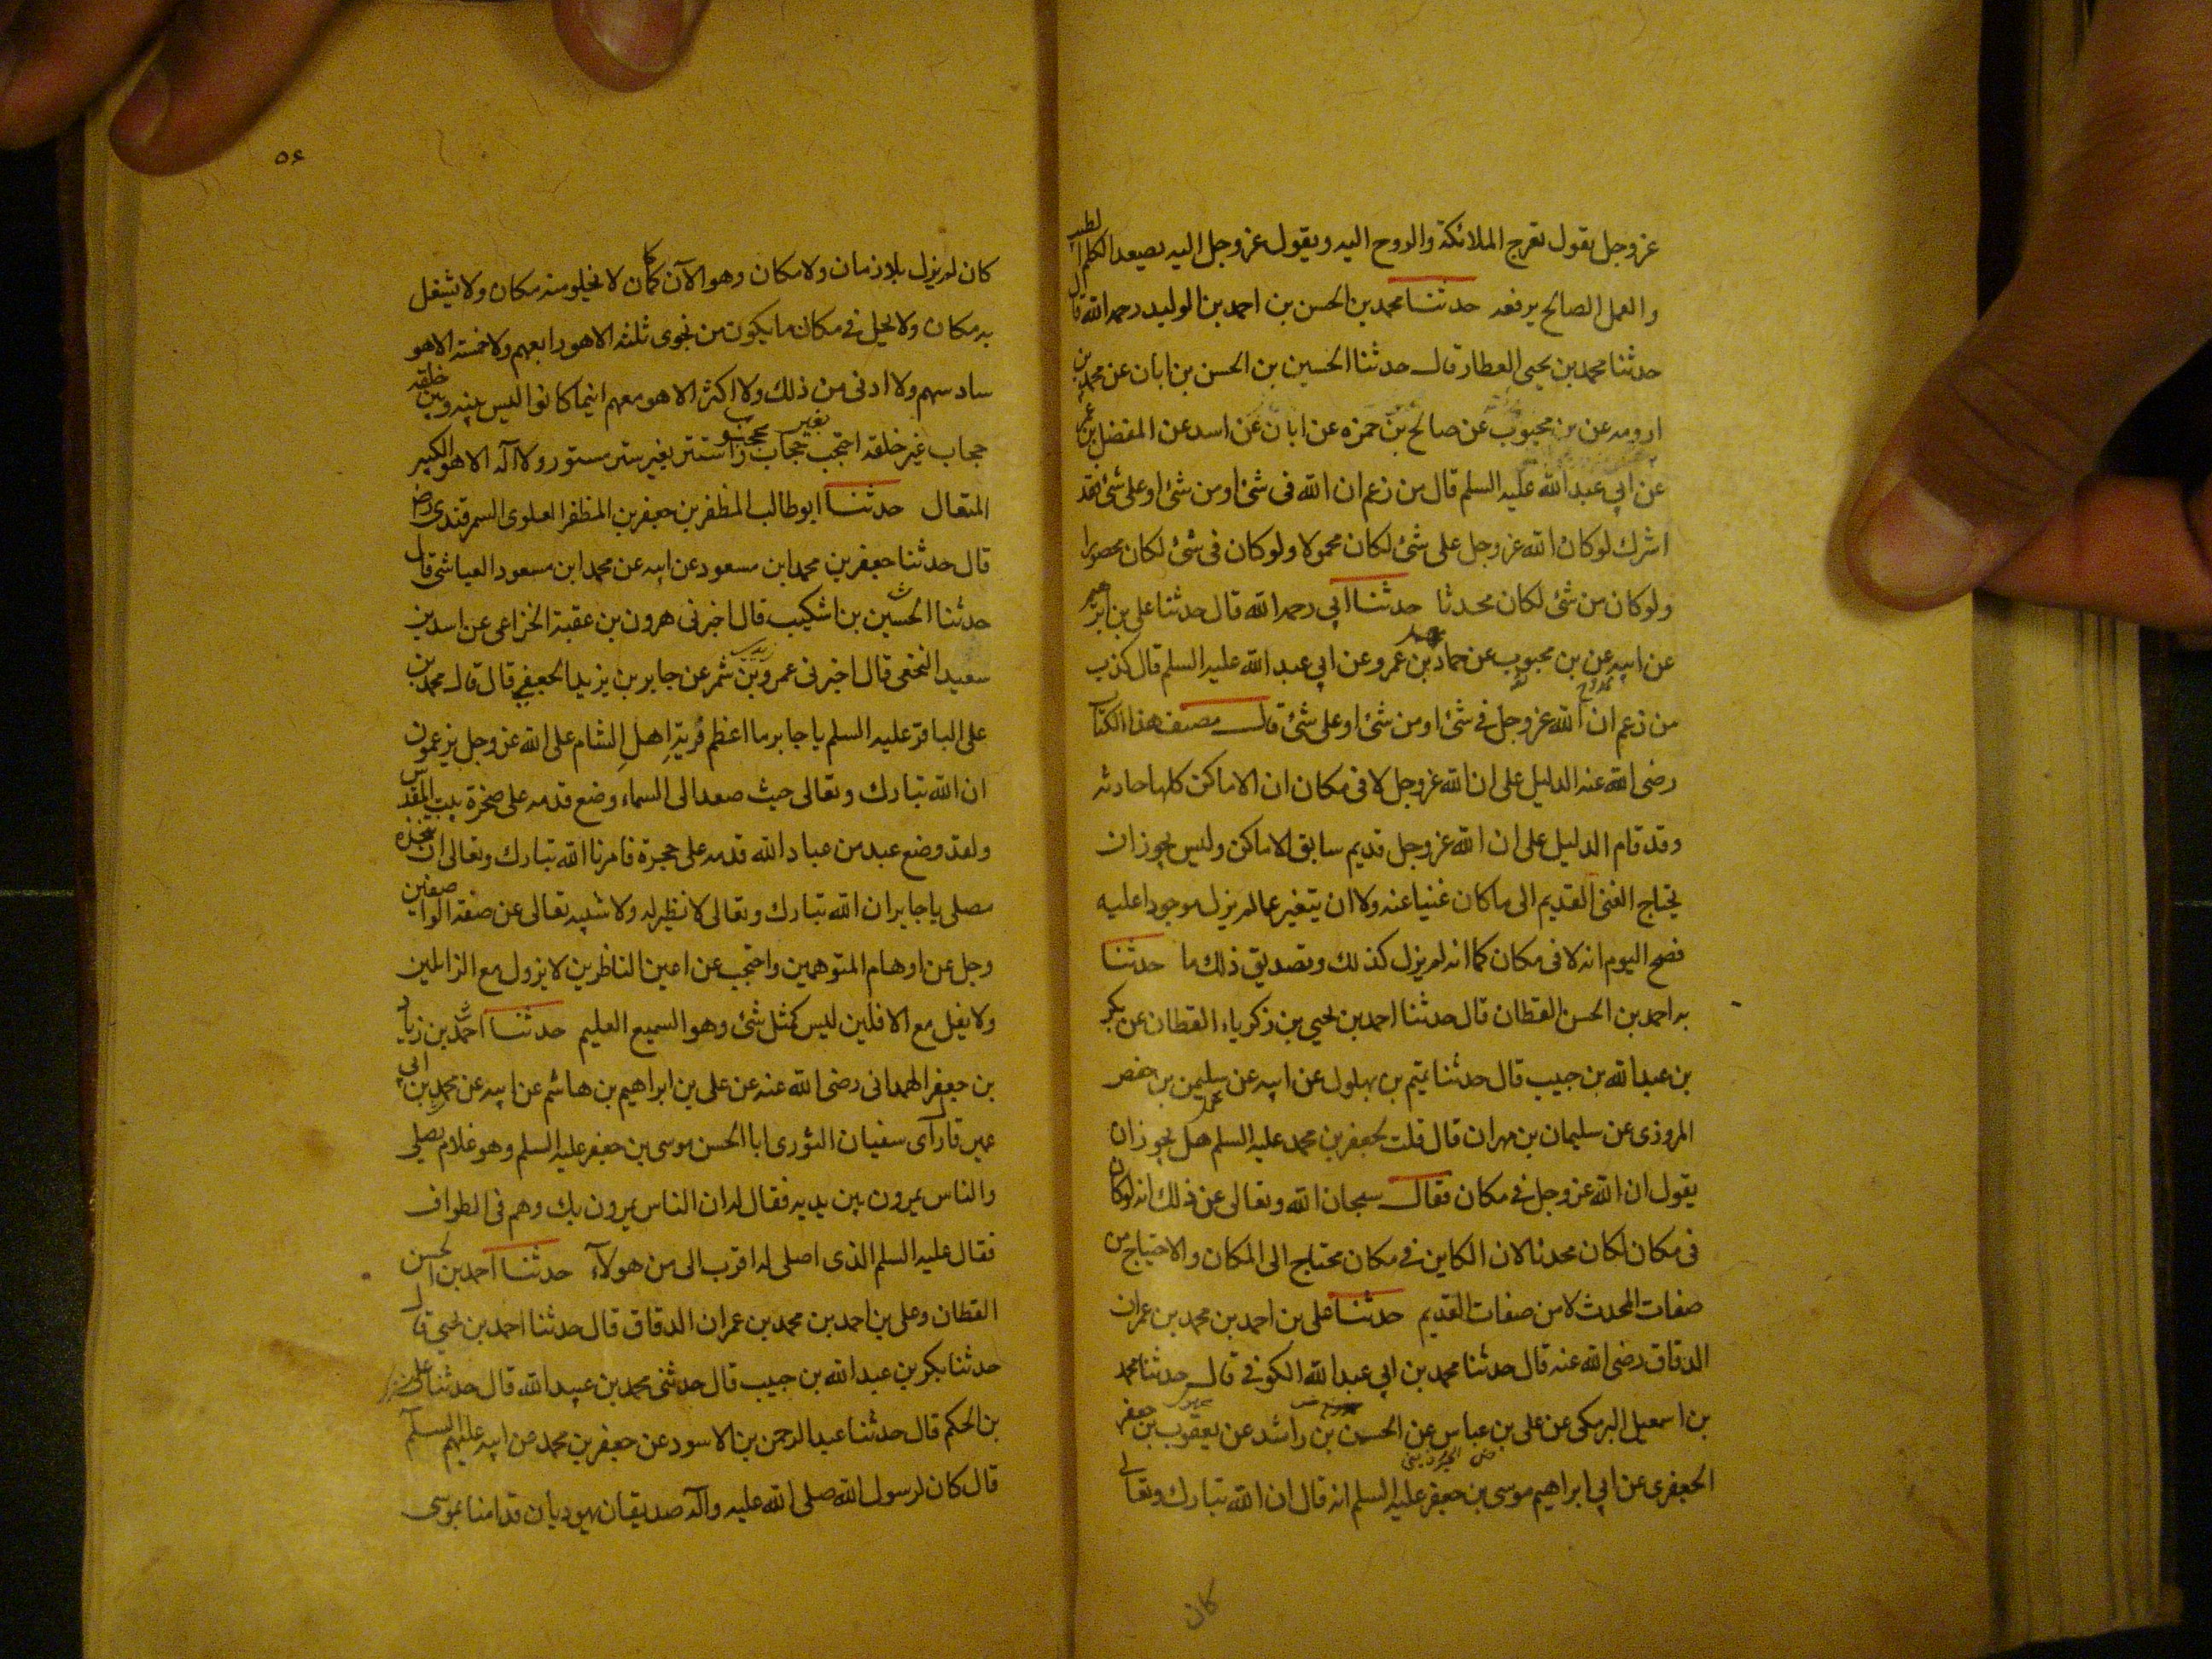 عز وجل يقول تعرج الملائكة والروح اليه ويقول عز وجل اليه يصعد الكلم الطيب
والعمل الصالح يرفعه حدثنا محمد بن الحسن بن احمد بن الوليد رحمه الله قال
حدثنا محمد بن يحيى العطار قال حدثنا الحسين بن الحسن بن ابان عن محمد بن
ارومه عن بن محبوب عن صالح بن حمزه عن ابان عن اسد عن المفضل بن عمر
عن ابي عبد الله عليه السلم قال من زعم ان الله فى شئ او من شئ او على شئ فقد
اشرك لو كان الله عز وجل على شئ لكان محمولا ولو كان فى شئ لكان محصورا
ولو كان من شئ لكان محدثا حدثنا ابي رحمه الله قال حدثنا على بن ابرهيم
عن ابيه عن بن محبوب عن حماد بن عمرو عن ابي عبد الله عليه السلم قال كذب
من زعم ان الله عز وجل في شئ او من شئ او على شئ قال مصنف هذا الكتاب
رضى الله عنه الدليل على ان الله عز وجل لا فى مكان ان الاماكن كلها حادثه
وقد قام الدليل على ان الله عز وجل قديم سابق الاماكن وليس يجوز ان
يحتاج الغنى القديم الى ما كان غنيا عنه ولا ان يتغير عما لم يزل موجودا عليه
فصح اليوم انه لا فى مكان كما انه لم يزل كذلك وتصديق ذلك ما حدثنا
به احمد بن الحسن القطان قال حدثنا احمد بن يحيى بن زكرياء القطان عن بكر
بن عبد الله بن حبيب قال حدثنا تميم بن بهلول عن ابيه عن سليمن بن حفص
المروزى عن سليمان بن مهران قال قلت لجعفر بن محمد عليه السلم هل يجوز ان
يقول ان الله عز وجل في مكان فقال سبحان الله وتعالى عن ذلك انه لو كان
فى مكان لكان محدثا لان الكاين في مكان محتاج الى المكان والاحتياج من
صفات المحدث لا من صفات القديم حدثنا على بن احمد بن محمد بن عمران
الدقاق رضى الله عنه قال حدثنا محمد بن ابي عبد الله الكوفي قال حدثنا محمد
بن اسمعيل البرمكى عن على بن عباس عن الحسن بن راشد عن يعقوب بن جعفر
الجعفرى عن ابي ابراهيم موسى بن جعفر عليه السلم انه قال ان الله تبارك وتعالى
كان
٥٤
كان لم يزل بلا زمان ولا مكان وهو الآن كما كان لا يخلو منه مكان ولا يشغل
به مكان ولا يحل في مكان ما يكون من نجوى ثلثه الا هو رابعهم ولا خمسه الا هو
سادسهم ولا ادنى من ذلك ولا اكثر الا هو معهم اينما كانوا ليس بينه وبين خلقه
حجاب غير خلقه احتجب بغير حجاب محجوب واستتر بغير ستر مستور ولا آله الا هو الكبير
المتعال حدثنا ابو طالب المظفر بن جعفر بن المظفر العلوى السمرقندى رض
قال حدثنا جعفر بن محمد ابن مسعود عن ابيه عن محمد ابن مسعود العياشى قال
حدثنا الحسين بن اشكيب قال اخبرنى هرون بن عقبة الخزاعى عن اسد بن
سعيد النخعى قال اخبرنى عمرو بن شمر عن جابر بن يزيد الجعفي قال قال محمد بن
على الباقر عليه السلم يا جابر ما اعظم فرية اهل الشام على الله عز وجل يزعمون
ان الله تبارك وتعالى حيث صعد الى السماء وضع قدمه على صخرة بيت المقدس
ولقد وضع عبد من عباد الله قدمه على حجرة فامرنا الله تبارك وتعالى ان نتخذه
مصلى يا جابر ان الله تبارك وتعالى لا نظير له ولا شبيه تعالى عن صفة الواصفين
وجل عن اوهام المتوهمين واحتجب عن اعين الناظرين لا يزول مع الزايلين
ولا يفل مع الافلين ليس كمثل شئ وهو السميع العليم حدثنا احمد بن زياد
بن جعفر الهمدانى رضى الله عنه عن على بن ابراهيم بن هاشم عن ابيه عن محمد بن ابي
عمير قال رآى سفيان الثورى ابا الحسن موسى بن جعفر عليه السلم وهو غلام يصلي
والناس يمرون بين يديه فقال له ان الناس يمرون بك وهم فى الطواف
فقال عليه السلم الذى اصلى له اقرب الى من هولآء حدثنا احمد بن الحسن
القطان وعلى بن احمد بن محمد بن عمران الدقاق قال حدثنا احمد بن يحيى قال
حدثنا بكر بن عبد الله بن حبيب قال حدثنى محمد بن عبيد الله قال حدثنا على
بن الحكم قال حدثنا عبد الرحمن بن الاسود عن جعفر بن محمد عن ابيه عليهم السلم
قال كان لرسول الله صلى الله عليه وآله صديقان يهوديان قد امنا بموسى